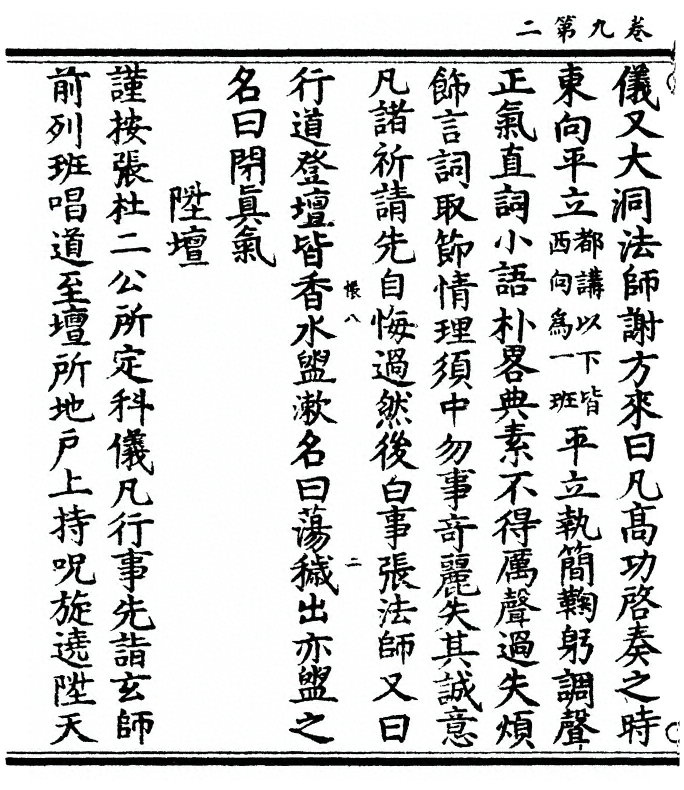 卷九第二
儀又大洞法師謝方來曰凡高功啓奏之時
東向平立都講以下皆西向爲一班平立執簡鞠躬調聲
正氣直詞小語朴畧典素不得厲聲過失煩
飾言詞取節情理須中勿事竒麗失其誠意
凡諸祈請先自悔過然後白事張法師又曰
行道登壇皆香水盥漱名曰蕩穢出亦盥之
悵八
二
名曰閉眞氣
陞壇
謹按張杜二公所定科儀凡行事先詣玄師
前列班唱道至壇所地户上持呪旋遶陞天